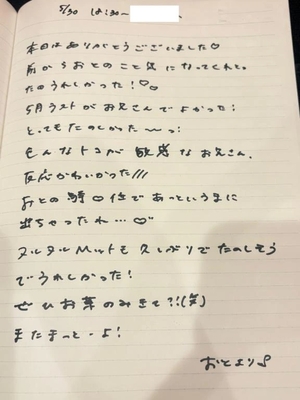 5/30 18:30〜
本日はありがとうございました♡
前からおとのこと気になってくれて。
たのうれしかった!♡♡
5月ラストがお兄さんでよかった!
とってもたのしかた〜っ!
そんなトコが敏感なお兄さん。
反応かわいかった///
おとの騎♡位であっというまに
出ちゃったね…♡
ヌルヌルMットも久しぶりでたのしそう
でうれしかった!
ぜひお茶のみきて?!(笑)
またまっと-よ!
おとより♪